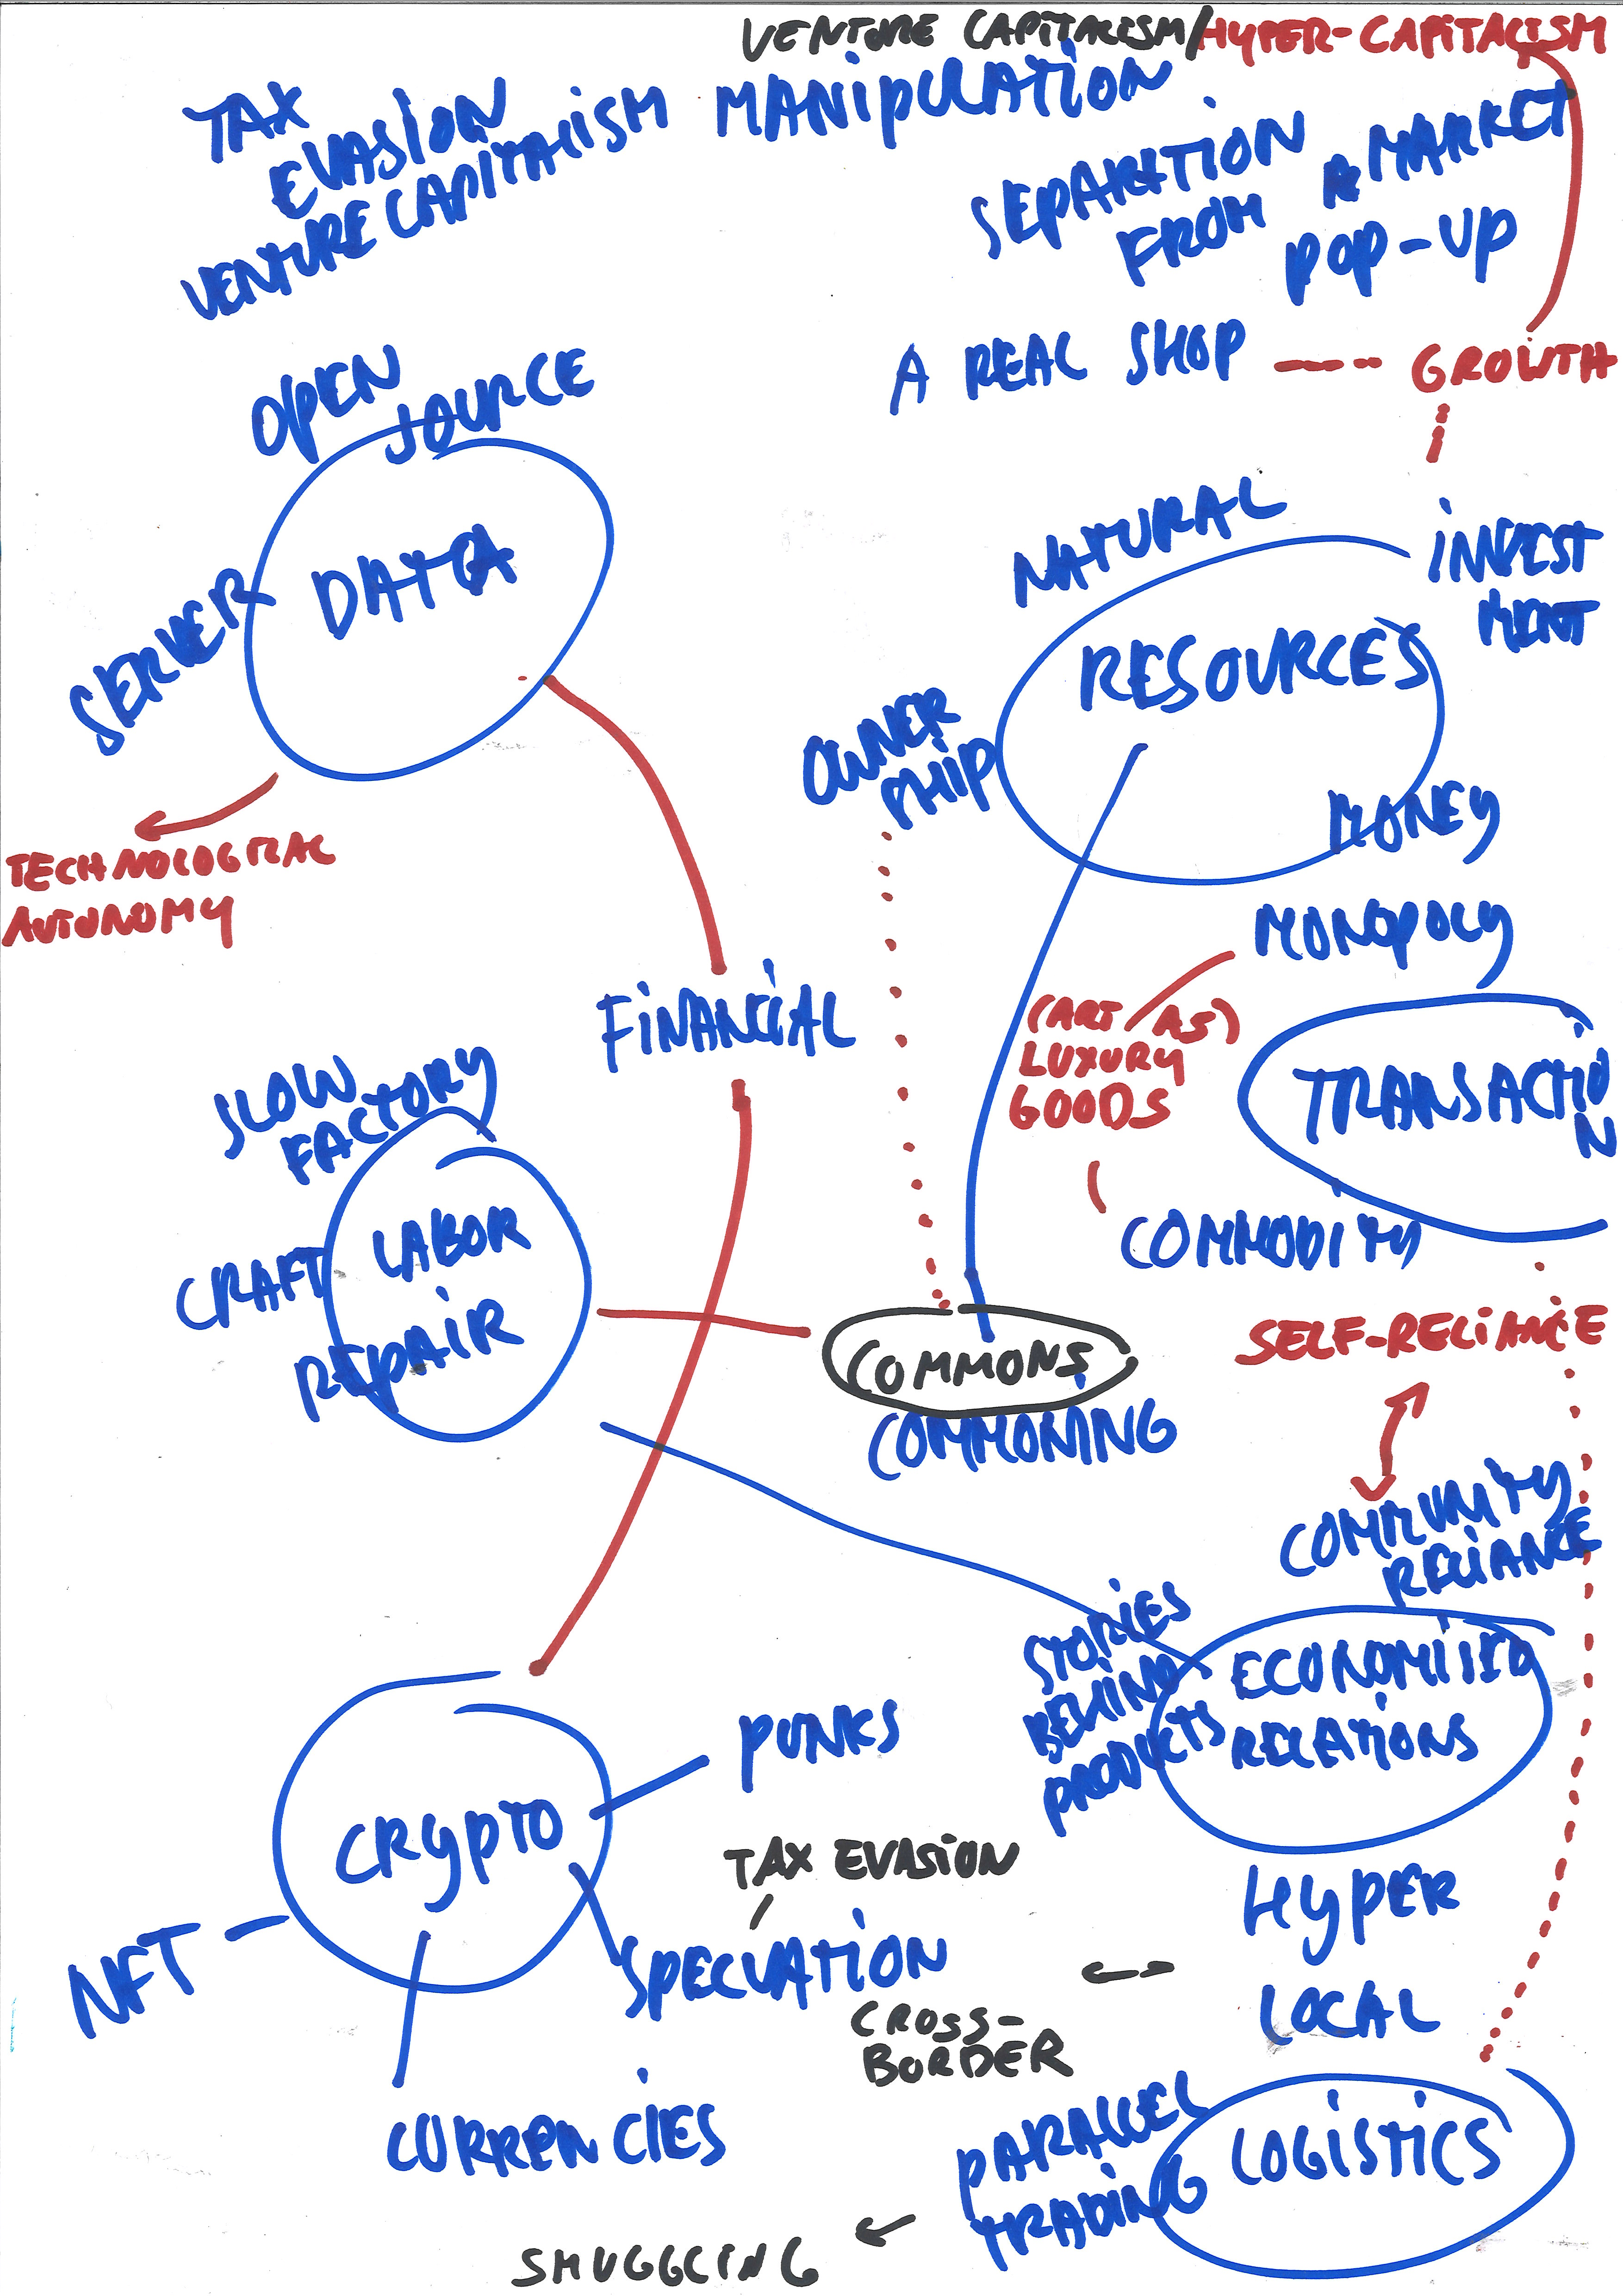 VENTURE CAPITALISM/HYPER-CAPITALISM
TAX
EVASION
VENTURE CAPITALISM
MANIPULATION
SEPARATION
FROM
MARKET
POP-UP
A REAL SHOP
GROWTH
OPEN
SOURCE
DATA
SERVER
TECHNOLOGICAL
AUTONOMY
NATURAL
RESOURCES
INVEST
MENT
OWNER
SHIP
MONEY
MONOPOLY
FINANCIAL
(ART AS)
LUXURY
GOODS
TRANSACTIO
N
COMMODITY
SLOW
FACTORY
CRAFT
LABOR
REPAIR
COMMONS
COMMONING
SELF-RELIANCE
COMMUNITY
RELIANCE
STORIES
BEHIND
PRODUCTS
RELATIONS
CRYPTO
PUNKS
TAX EVASION
SPECUATION
NFT
CURRENCIES
HYPER
LOCAL
CROSS-
BORDER
PARALLEL
TRADING
LOGISTICS
SMUGGLING